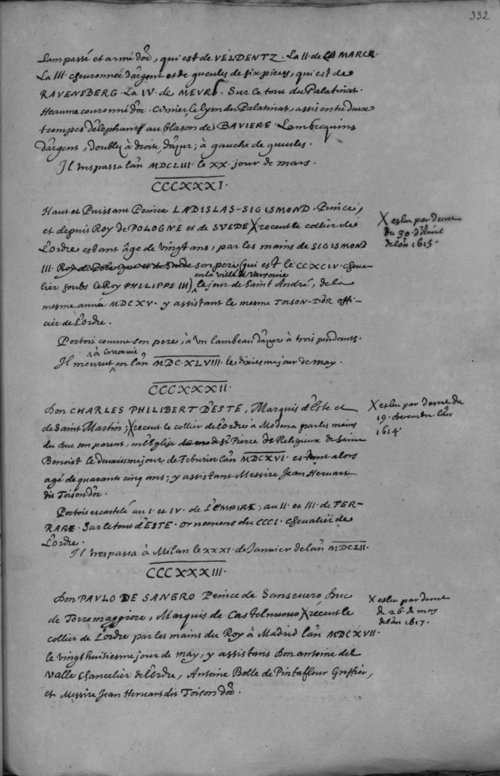 332
Lampassé et armé d'or, qui est de VELDENTZ. La II. de LA MARCK
La III. cheuronnée d'argent et de gueules de six pieces, qui est de
RAVENSBERG. La IV. de MEVRS. Sur le tout du Palatinat.
Heaume couronné d'or. Cimier, le lyon du Palatinat, assis entre deux
trompes d'elephant au blason de BAVIERE. Lambrequins
d'argent, doublez à droite d'azur; à gauche de gueules.
Il trespassa l'an MDCLIII. le XX. jour de mars.
CCCXXXI.
Haut et Puissant Prince LADISLAS-SIGISMOND. Prince,
et depuis Roy de POLOGNE et de SVEDE X receut le collier de
L'ordre estant âgé de vingt ans, par les mains de SIGISMOND
III. Roy de Pologne et de Suede son pere (qui est le CCXCIV. cheua-
lier soubs le Roy PHILIPPE III) en la ville de Varsouie le jour de Saint André, de la
mesme année MDCXV. y assistant le mesme TOISON-D'OR offi-
cier de L'ordre.
X esleu par decret
du 30. d'Auril
de l'an 1615.
Portoit comme son pere, à un lambeau d'azur à trois pendants.
Il mourut à Cracouie, en l'an MDC.XLVIII. le dixiesme jour de may.
CCCXXXII.
Don CHARLES PHILIBERT D'ESTE, Marquis d'Este et
de Saint Martin; X receut le collier de L'ordre à Modena par les mains
du duc son parent, en l'Eglise de St Pierre de Religieux de Saint
Benoist le deuxiesme jour de Feburier l'an MDCXVI. estant alors
agé de quarante cinq ans; y assistant Messire Jean Heruart
dit Toison d'or.
X esleu par decret du
19. decembre l'an
1614.
Portoit escartelé au I. et IV. de L'EMPIRE; au II. et III. de FER-
RARE. Sur le tout D'ESTE. ornemens du CCCI. chevalier de
L'ordre.
Il trespassa à Milan le XXXI. de Janvier de l'an MDCLII.
CCCXXXIII.
Don PAVLO DE SANGRO Prince de Sanseuero Duc
de Torremaggiore, Marquis de Castelnuouo X receut le
collier de L'ordre par les mains du Roy à Madrid l'an MDCXVII.
le vingt huitiesme jour de may, y assistans Don antoine del
Valle chancelier de L'ordre, Antoine Bolle de Pintaflour Greffier,
et Messire Jean Heruart dit Toison d'or.
X esleu par decret
de 26. de may
de l'an 1617.